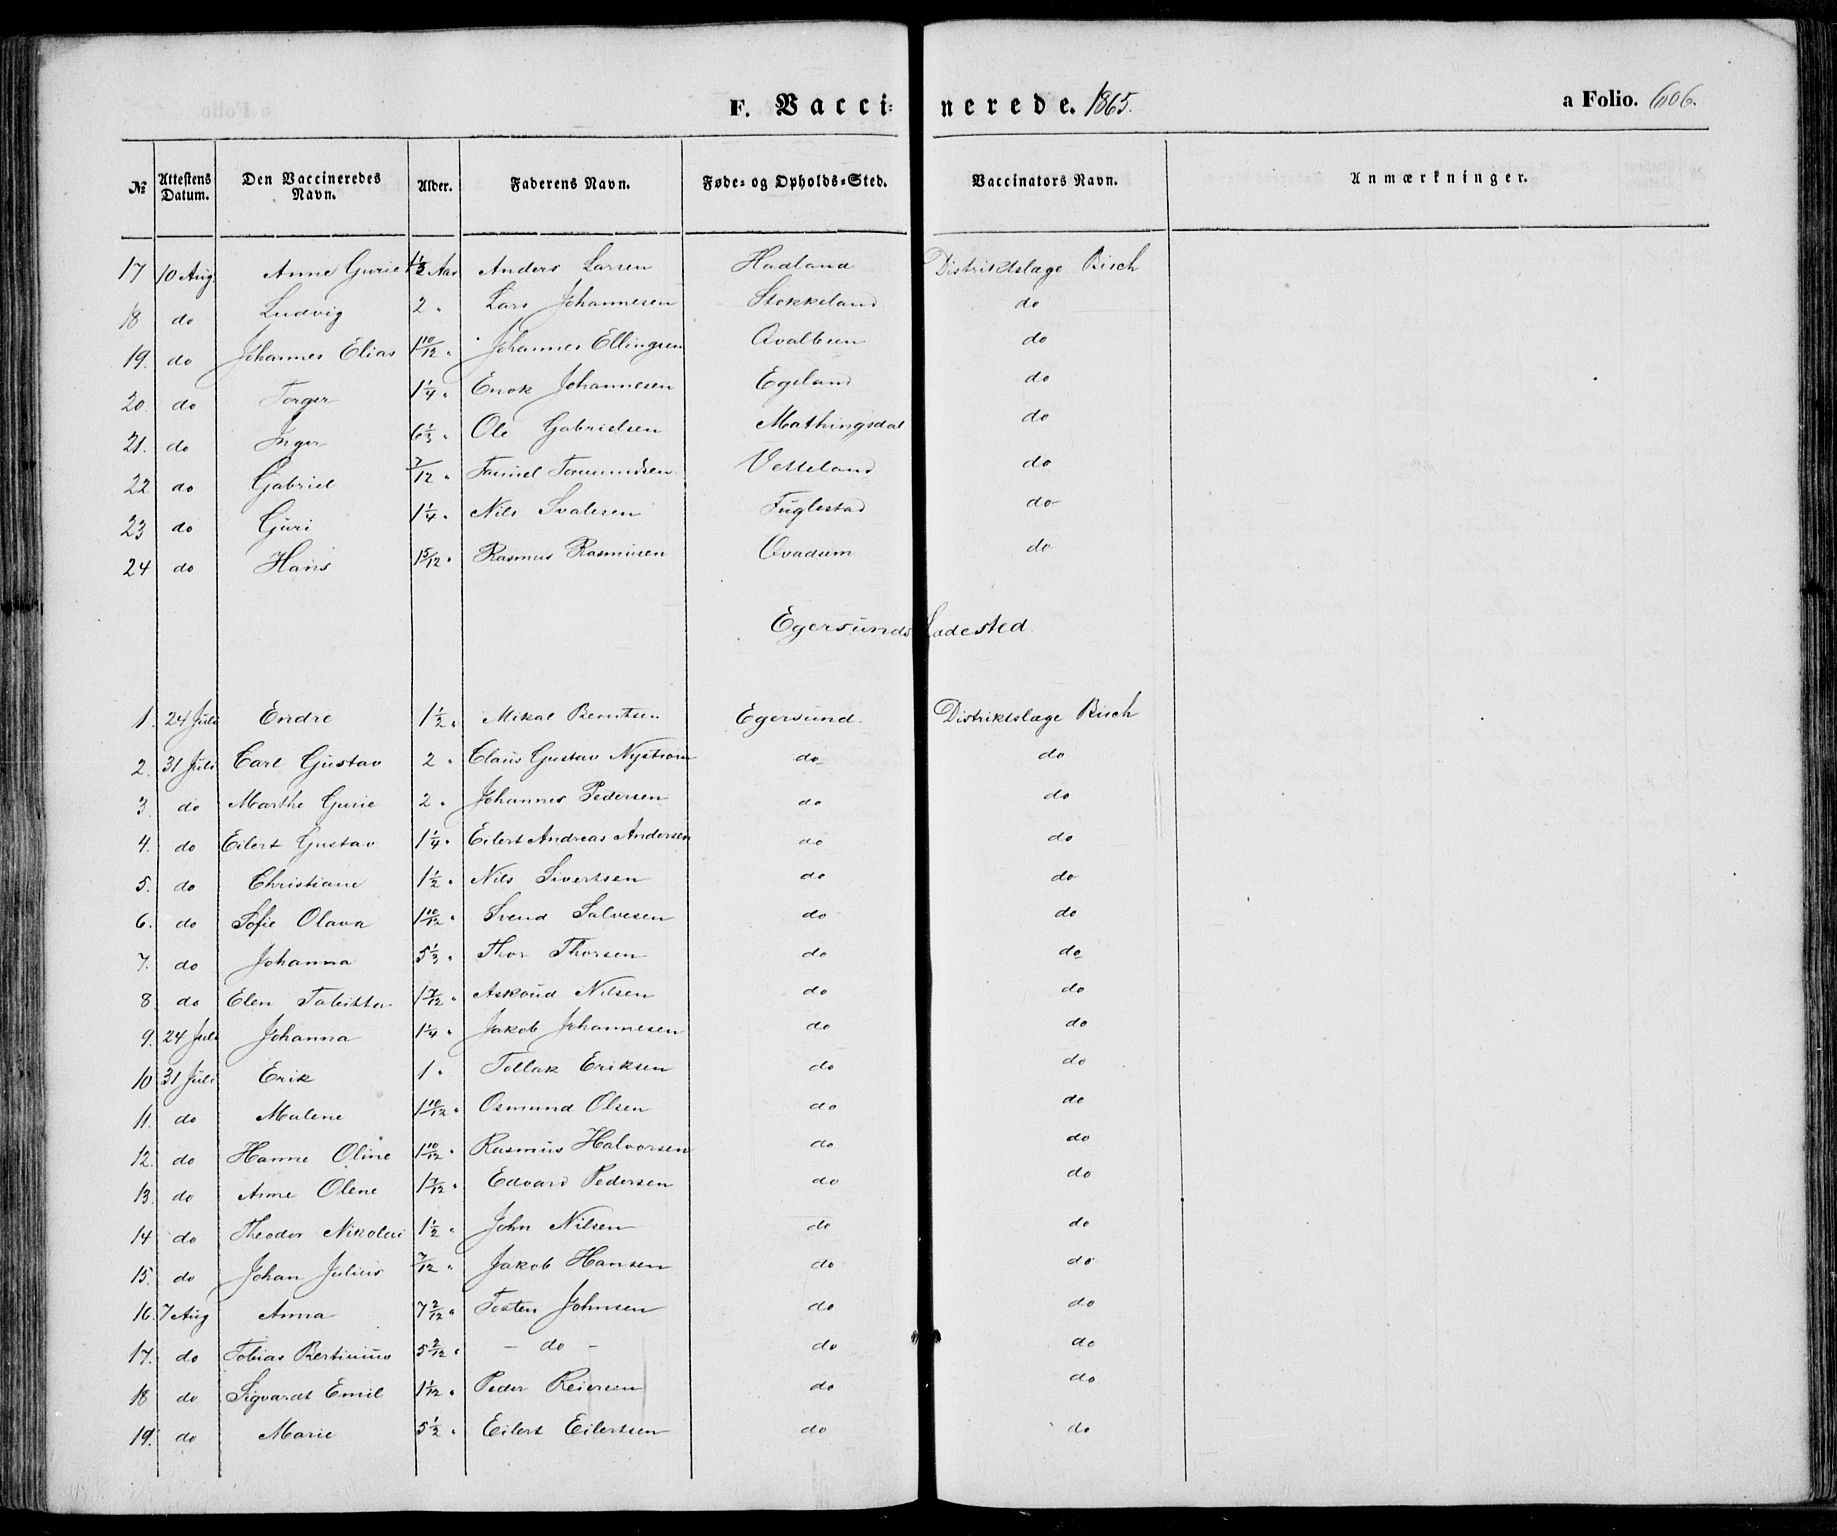 F. Vaccinerede. 1865. a Folio. 606.
№ Attestens Datum. Den Vaccineredes Navn. Alder. Faderens Navn. Føde- og Opholds-Sted. Vaccinators Navn. Anmærkninger.
17 10 Aug. Anne Gurie 1 1/2 Aar Anders Larsen Hadland Distriktslæge Bisch
18 do Ludvig 2 " Lars Johannesen Stokkeland do
19. do Johannes Elias 1 10/12 " Johannes Ellingsen Qvalbein do
20. do Torger 1 1/4 " Enok Johannesen Egeland do
21. do Inger 6 1/3 " Ole Gabrielsen Mathingsdal do
22 do Gabriel 7/12 " Tormundsen Vetteland do
23 do Guri 1 1/4 " Nils Svalesen Fuglestad do
24 do Hans 1 5/12 " Rasmus Rasmusen Qvadsem do
Egersunds Ladested
1. 24 Juli Endre 1 1/2 " Mikal Berntsen Egersund. Distriktslæge Bisch
2. 31 Juli Carl Gustav 2 " Claus Gustav Nystrøm do do
3 do Marthe Gurie 2 " Johannes Pedersen do do
4. do Eilert Gustav 1 1/4 " Eilert Andreas Andersen do do
5. do Christiane 1 1/2 " Nils Sivertsen do do
6. do Sofie Olava 1 10/12 " Svend Salvesen do do
7. do Johanna 5 1/3 " Thor Thorsen do do
8 do Elen Tabitha 1 7/12 " Askoud Nilsen do do
9. 24 Juli Johanna 1 1/4 " Jakob Johannesen do do
10 31 Juli Erik 1 " Tollak Eriksen do do
11. do Malene 1 10/12 " Osmund Olsen do do
12. do Hanne Oline 1 10/12 " Rasmus Halvorsen do do
13. do Anne Olene 1 7/12 " Edvard Pedersen do do
14 do Theodor Nikolai 1 1/2 " John Nilsen do do
15. do Johan Julius 7/12 " Jakob Hansen do do
16. 7 Aug Anna 7 2/12 " Tosten Johnsen do do
17. do Tobias Bertinius 5 2/12 " - do - do do
18 do Sigvardt Emil 1 1/12 " Peder Reiersen do do
19. do Marie 5 1/2 " Eilert Eilertsen do do